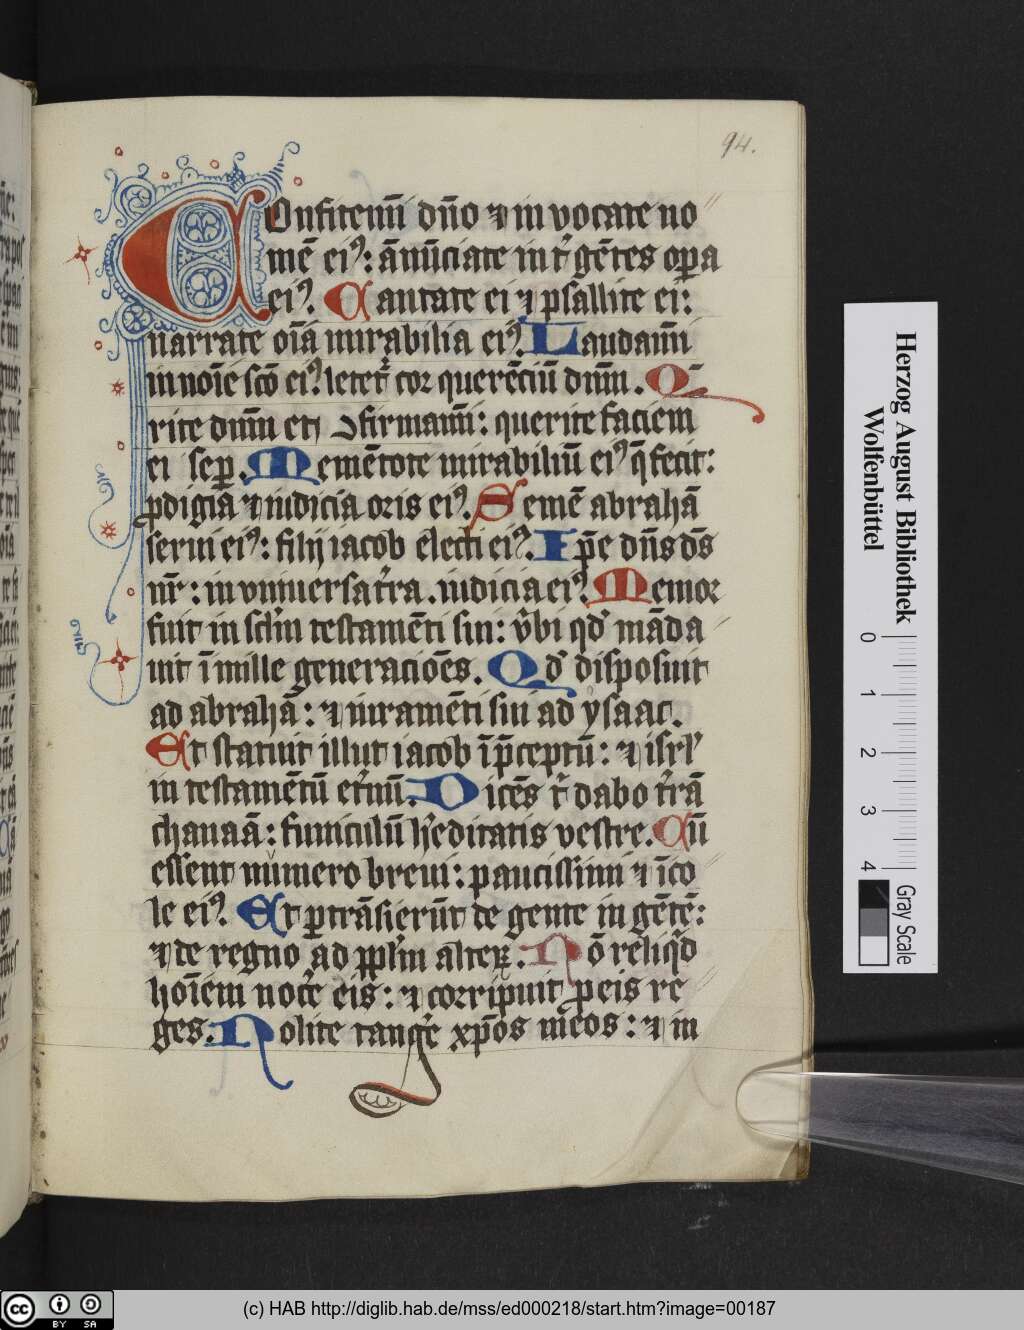 94.
Onfitemĩ dño ⁊ in vocate no
mē eiꝰ: ānūciate int̉ gētes oꝑa
eiꝰ. Cantate ei ⁊ psallite ei:
narrate oīa mirabilia eiꝰ. Laudamī
in noīe scō eiꝰ letet̉ cor querēciū dnm̄. Q̄
rite dnm̄ et ꝯfirmamī: querite faciem
ei seꝑ. Memētote mirabiliū eiꝰ q̄ fecit:
ꝓdigia ⁊ iudicia oris eiꝰ. Semē abrahā
serui eiꝰ: filij iacob electi eiꝰ. Ip̄e dñs ds̄
nr̄: in vniuersa t̉ra. iudicia eiꝰ. Memor
fuit in scl̉m testamēti sui: v̉bi qd̉ māda
uit ī mille generacioēs. Qd̉ disposuit
ad abrahā: ⁊ iuramēti sui ad ysaac.
Et statuit illut iacob ī p̄ceptū: ⁊ isrl̉
in testamētū et̉nū. Dicēs t̉ dabo t̉rā
chanaā: funiculū h̉editatis vestre. Cū
essent numero breui: paucissimi ⁊ īco
le eiꝰ. Et ꝑtrāsierūt de gente in gētē:
⁊ de regno ad ppl̉m alterꝝ. Nō reliqd̉
hoīem nocẻ eis: ⁊ corripuit ꝓ eis re
ges. Nolite tangẻ xp̄os meos: ⁊ in
Herzog August Bibliothek
Wolfenbüttel
0 1 2 3 4
Gray Scale
cc BY SA
(c) HAB http://diglib.hab.de/mss/ed000218/start.htm?image=00187